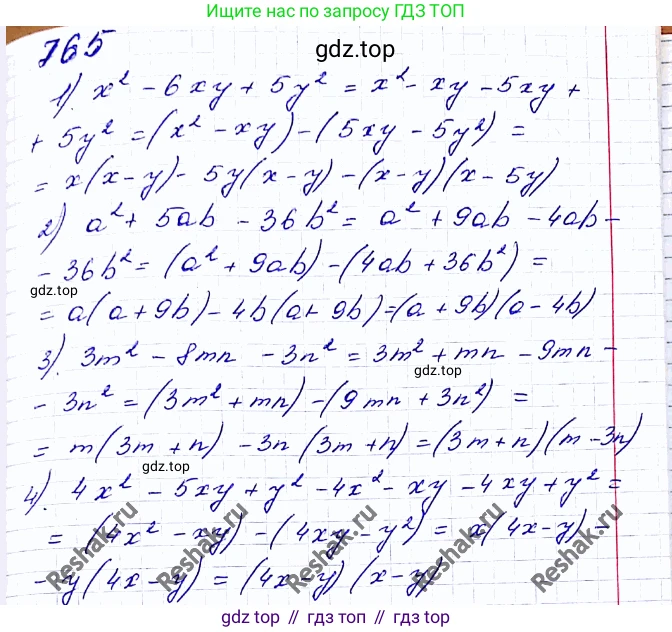 Ищите нас по запросу ГДЗ ТОП
765
gdz.top
1). x² - 6xy + 5y² = x² - xy - 5xy +
+ 5y² = (x² - xy) - (5xy - 5y²) =
= x(x-y) - 5y(x-y) - (x-y)(x-5y)
2) a² + 5ab - 36b² = a² + 9ab - 4ab -
- 36b² = (a² + 9ab) - (4ab + 36b²) =
gdz.top
= a(a+9b) - 4b(a+9b) = (a+9b)(a-4b)
3). 3m² - 8mn - 3n² = 3m² + mn - 9mn -
gdz.top
- 3n² = (3m² + mn) - (9mn + 3n²) =
= m(3m+n) - 3n(3m+n) = (3m+n)(m-3n)
gdz.top
4). 4x² - 5xy + y² - 4x² - xy - 4xy + y² =
= (4x² - xy) - (4xy - y²) = x(4x-y) -
- y(4x-y) = (4x-y)(x-y)
Reshak.ru
Reshak.ru
Reshak.ru
gdz top // гдз топ // гдз top